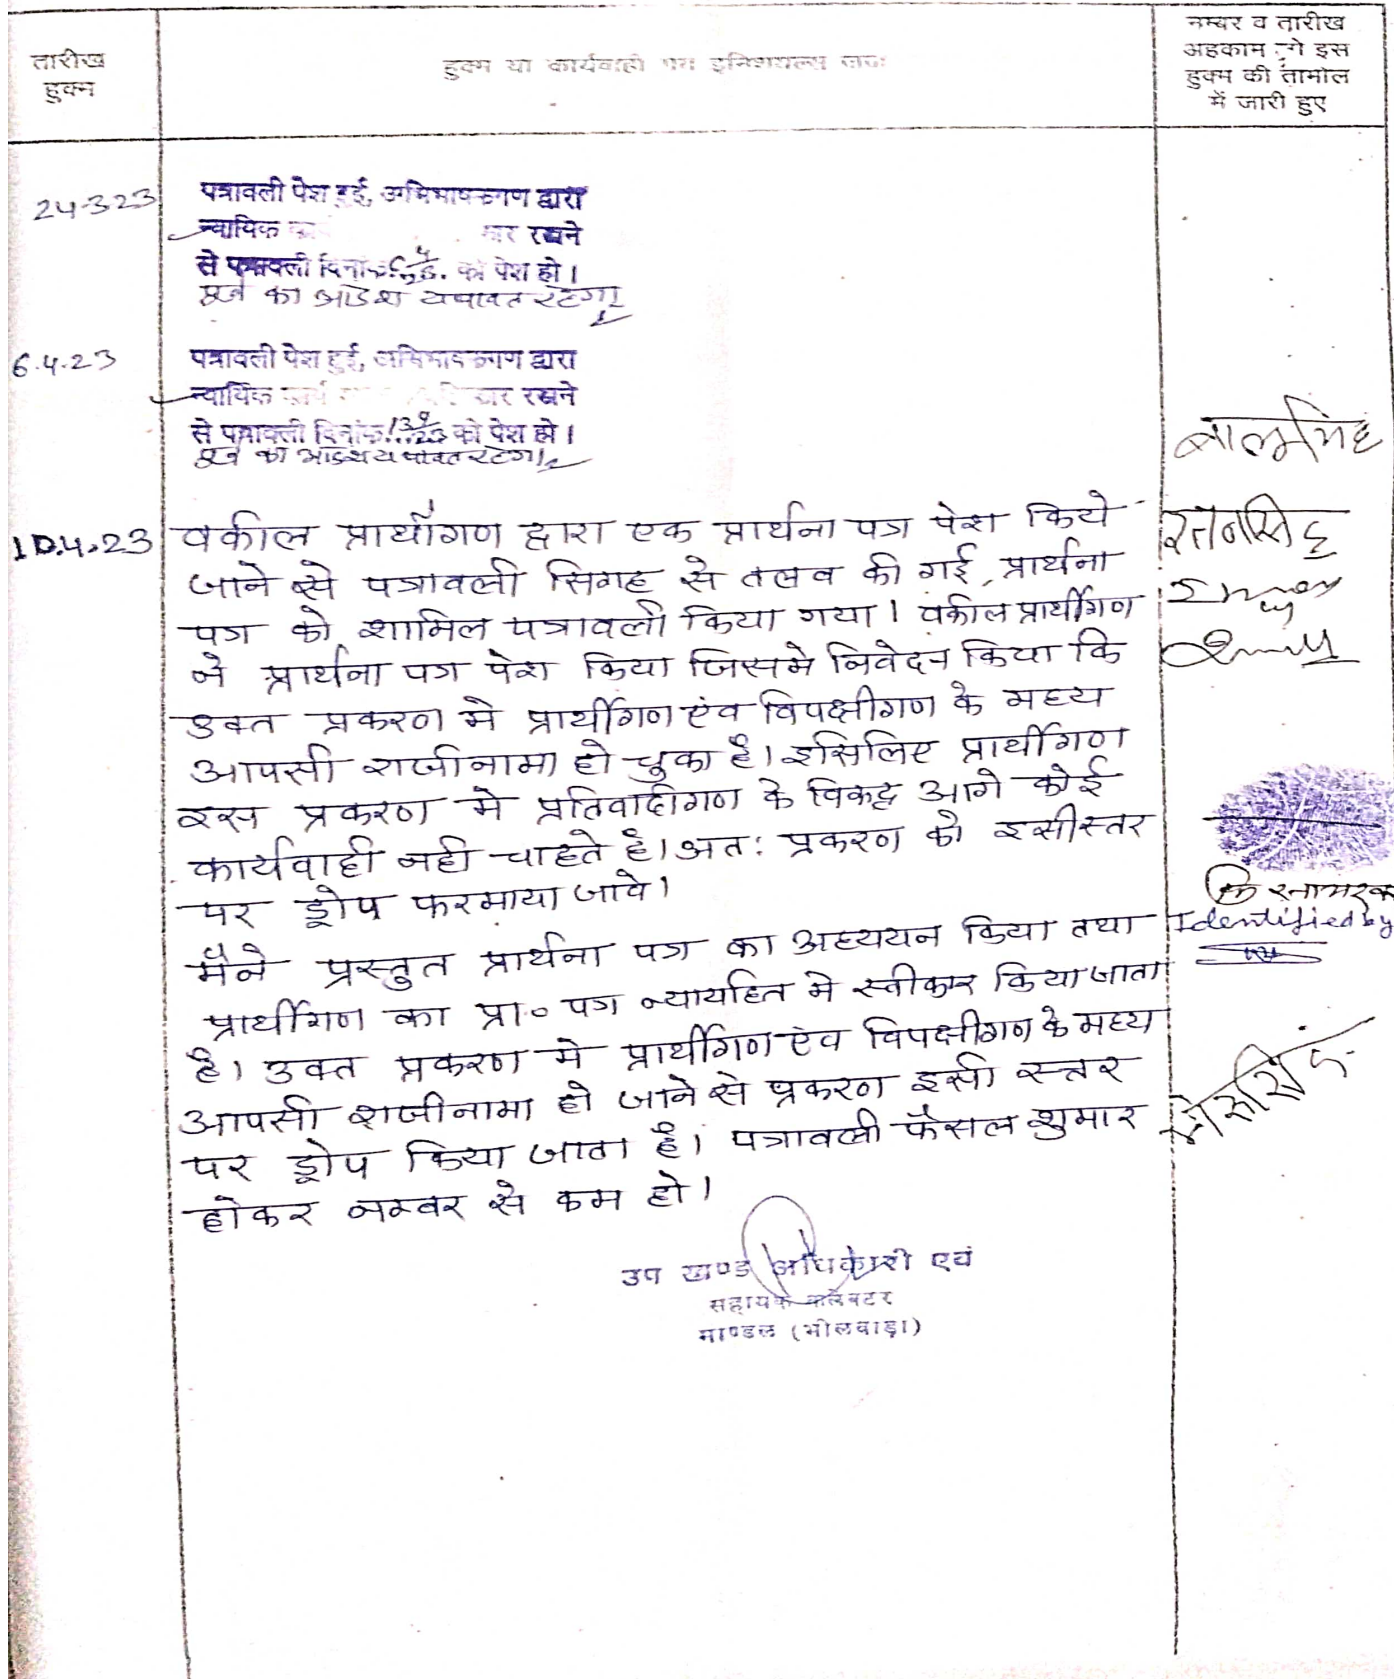 तारीख
हुक्म
हुक्म या कार्यवाही मय इनिशियल्स जज
नम्बर व तारीख
अहकाम जो इस
हुक्म की तामील
में जारी हुए
24-3-23
पत्रावली पेश हुई, अभिभाषकगण द्वारा
न्यायिक रखने
से पत्रावली दिनांक को पेश हो।
पूर्व का आदेश यथावत रहेगा
6.4.23
पत्रावली पेश हुई, अभिभाषकगण द्वारा
न्यायिक कार्य रखने
से पत्रावली दिनांक को पेश हो।
पूर्व का आदेश यथावत रहेगा
10.4.23
वकील प्रार्थीगण द्वारा एक प्रार्थना पत्र पेश किये
जाने से पत्रावली सिगह से तलब की गई, प्रार्थना
पत्र को शामिल पत्रावली किया गया। वकील प्रार्थीगण
ने प्रार्थना पत्र पेश किया जिसमे निवेदन किया कि
उक्त प्रकरण मे प्रार्थीगण एंव विपक्षीगण के मध्य
आपसी राजीनामा हो चुका है। इसिलिए प्रार्थीगण
इस प्रकरण मे प्रतिवादीगण के विरूद्ध आगे कोई
कार्यवाही नही चाहते है। अत: प्रकरण को इसीस्तर
पर ड्रोप फरमाया जावे।
मैने प्रस्तुत प्रार्थना पत्र का अध्ययन किया तथा
प्रार्थीगण का प्रा० पत्र न्यायहित मे स्वीकार किया जाता
है। उक्त प्रकरण मे प्रार्थीगण एंव विपक्षीगण के मध्य
आपसी राजीनामा हो जाने से प्रकरण इसी स्तर
पर ड्रोप किया जाता है। पत्रावली फैसल शुमार
होकर नम्बर से कम हो।
रतनसिंह
Identified by
उप खण्ड अधिकारी एवं
सहायक कलेक्टर
माण्डल (भीलवाड़ा)